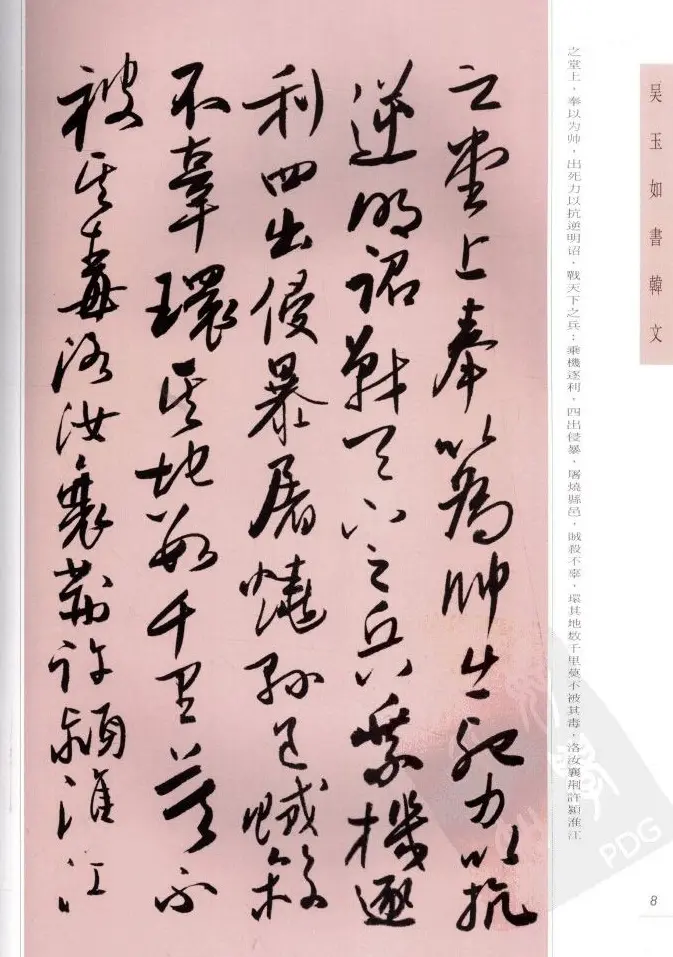 吴玉如書韓文
之堂上，奉以为帅，出死力以抗逆明诏，戰天下之兵；乘機逐利，四出侵暴，屠燒縣邑，賊殺不辜，環其地数千里莫不被其毒，洛汝襄荆許潁淮江
之堂上奉以為帥出死力以抗
逆明詔戰天下之兵乘機逐
利四出侵暴屠燒縣邑賊殺
不辜環其地數千里莫不
被其毒洛汝襄荊許潁淮江
PDG
8